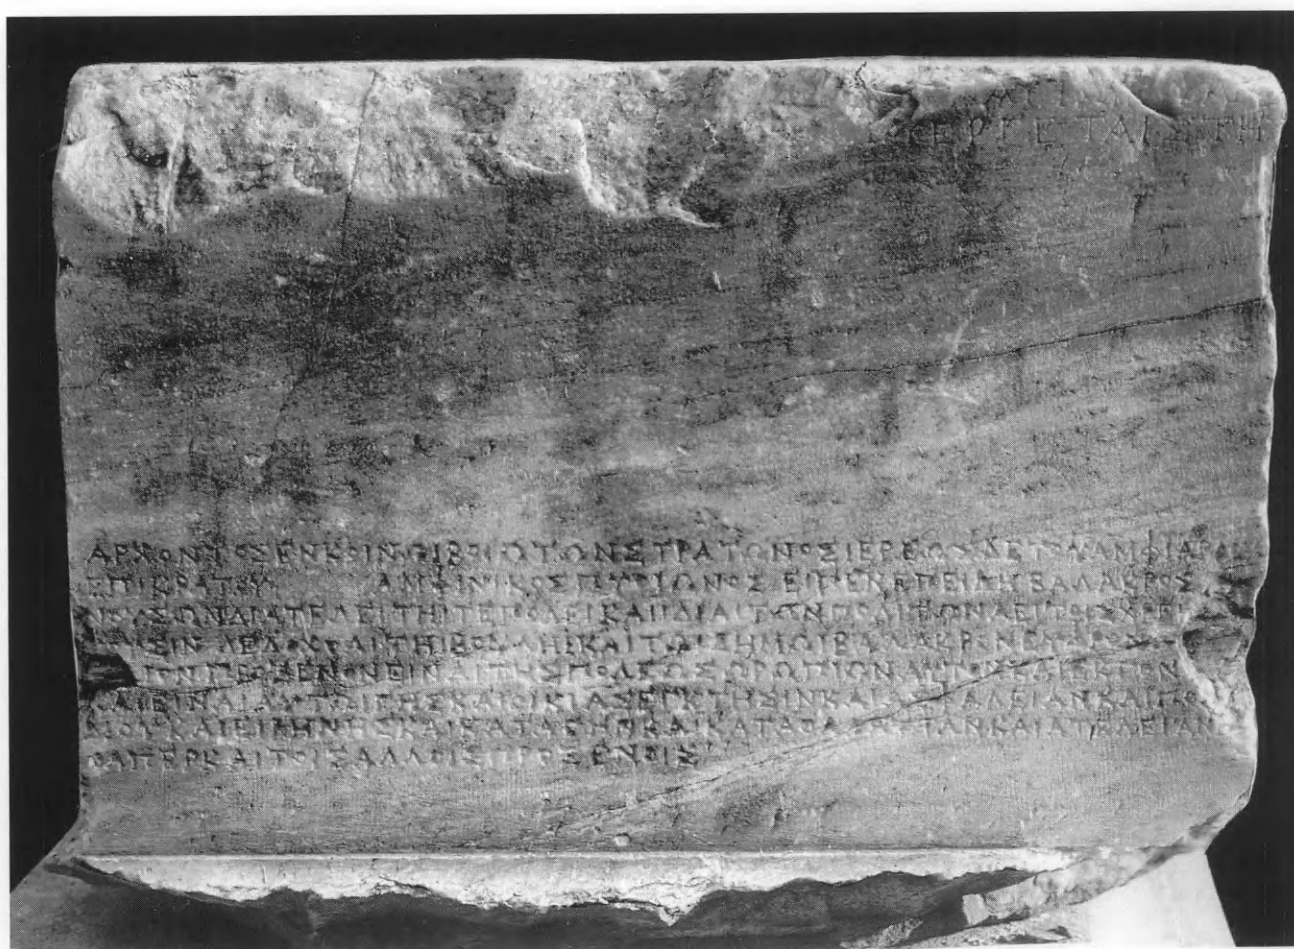 ΑΡΧΟΝΤΟΣΕΝΚΟΙΝΩΙΒΟΙΩΤΩΝΣΤΡΑΤΩΝΟΣΙΕΡΕΩΣΔΕΤΟΥΑΜΦΙΑΡΑ
ΕΠΙΚΡΑΤΟΥ ΑΜΦΙΝΙΚΟΣΠΥΡΙΩΝΟΣΕΙΠΕΝΕΠΕΙΔΗΒΑΛΑΚΡΟΣ
ΝΟΥΣΩΝΔΙΑΤΕΛΕΙΤΗΙΤΕΠΟΛΕΙΚΑΙΙΔΙΑΙΤΩΝΠΟΛΙΤΩΝΑΕΙΤΟΙΣΧΡΕΙ
ΔΕΔΟΧΘΑΙΤΗΙΒΟΥΛΗΙΚΑΙΤΩΙΔΗΜΩΙΒΑΛΑΚΡΟΝ
ΠΡΟΞΕΝΟΝΕΙΝΑΙΤΗΣΠΟΛΕΩΣΩΡΩΠΙΩΝΑΥΤΟΝΚΑΙΕΚΓΟΝ
ΚΑΙΕΙΝΑΙΑΥΤΟΙΣΓΗΣΚΑΙΟΙΚΙΑΣΕΓΚΤΗΣΙΝΚΑΙΑΣΦΑΛΕΙΑΝΚΑΙΠΟ
ΜΟΥΚΑΙΕΙΡΗΝΗΣΚΑΙΚΑΤΑΓΗΝΚΑΙΚΑΤΑΘΑΛΑΤΤΑΝΚΑΙΑΤΕΛΕΙΑΝ
ΟΣΑΠΕΡΚΑΙΤΟΙΣΑΛΛΟΙΣΠΡΟΞΕΝΟΙΣ